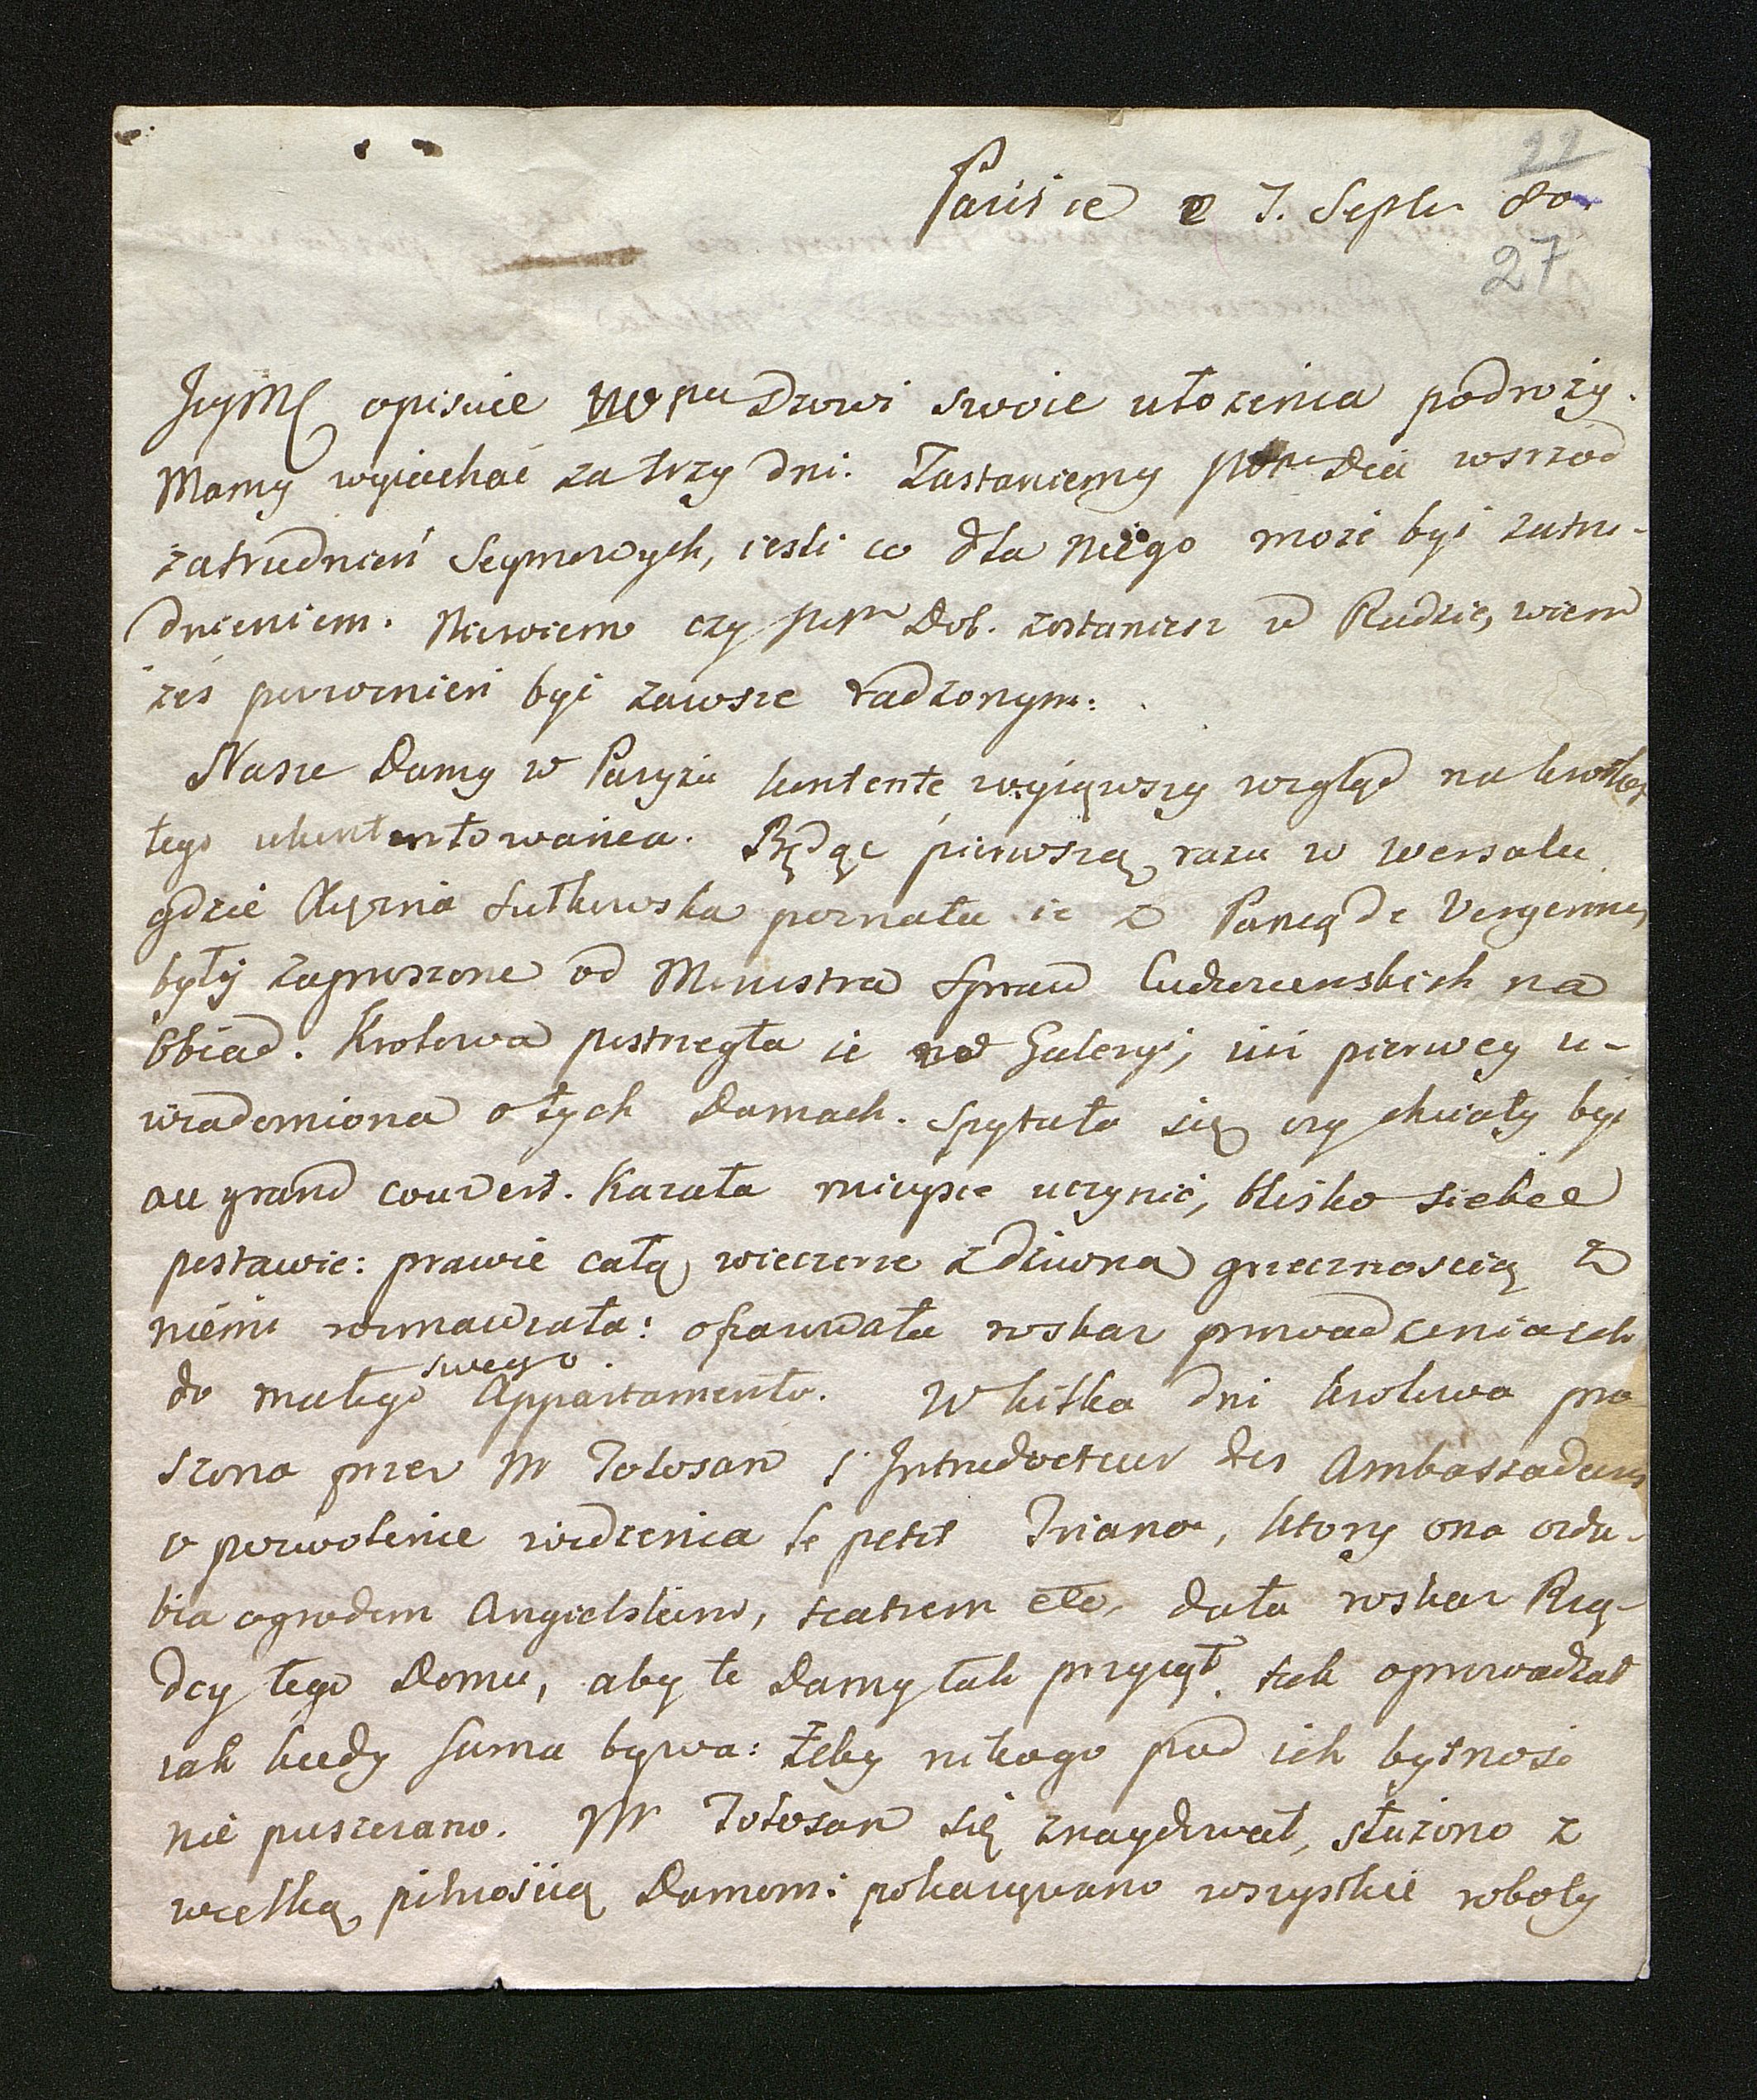 22
Paris ce 7. Septr 80.
27
JeyMć opisuie WPanu Dzowi swoie ułozenia podrozy.
Mamy wyiachać za trzy dni. Zastaniemy Dcia wsrzod
zatrudnień Seymowych, iesli co dla niego może być zatru-
dnieniem. Niewiem czy Dob. zostaniesz w Rudzie, wiem
żeś powinień być zawsze radzonym.
Nasze Damy w Paryżu kontente wyiąwszy wzgląd na krotkość
tego ukontentowania. Będąc pierwszą razą w Wersalu
gdzie Xiężna Sułkowska poznała ie z Panią de Vergennes,
były zaproszone od Ministra Spraw Cudzoziemskich na
Obiad. Krolowa postrzegła ie w Galeryi, iuż pierwey u-
wiadomiona o tych Damach. Spytała się czy chciały być
au grand couvert. Kazała mieysce uczynić, blisko siebie
postawić: prawie całą wieczerzę z dziwną grzecznoscią z
niemi rozmawiała: ofiarowała roskaz prowadzenia ich
do małego swego Appartamentu. W kilka dni krolowa pro-
szona przez Mr Tolosan l'Introducteur des Ambassadeurs
o pozwolenie widzenia le petit Trianon, ktory ona ozda-
bia ogrodem Angielskim, teatrem etc. dała roskaz Rzą-
dcy tego Domu, aby te Damy tak przyiął, tak oprowadzał
iak kiedy sama bywa: żeby nikogo pod ich bytność
nie puszczano. Mr Tolosan się znaydował, służono z
wielką pilnością Damom: pokazywano wszystkie roboty